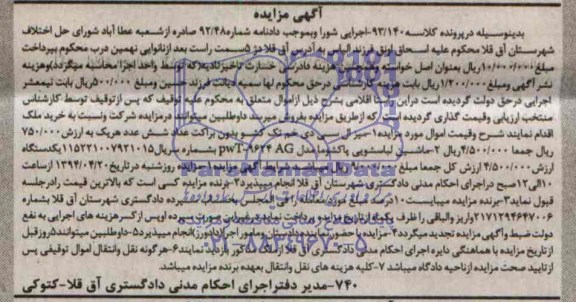 آگهی مزایده
بدینوسیله درپرونده کلاسه ۹۳/۱۴۰-اجرایی شورا وبموجب دادنامه شماره ۹۲/۴۸ صادره ازشعبه عطا آباد شورای حل اختلاف
شهرستان آق قلا محکوم علیه اسحاق اونق فرزندالیاس به آدرس آق قلا در قسمت راست بعد ازنانوایی نهمین درب محکوم بپرداخت
مبلغ ۱۰/۰۰۰/۰۰۰ریال بعنوان اصل خواسته هزینه دادرسی خسارت تاخیرتادیه(که توسط واحد اجرا محاسبه میگردد)وهزینه
نشر آگهی ومبلغ ۱/۲۰۰/۰۰۰ریال بابت کارشناسی درحق محکوم لها سمیه دیانت فرزند حسین ومبلغ ۵۰۰/۰۰۰ریال بابت نیمعشر
اجرایی درحق دولت گردیده است دراین راستا اقلامی بشرح ذیل ازاموال متعلق به محکوم علیه توقیف که پس ازتوقیف توسط کارشناس
منتخب ارزیابی وقیمت گذاری گردیده است که ازطریق مزایده بفروش میرسد داوطلبین میتوانند درمزایده شرکت ونسبت به خرید ملک
اقدام نمایند شرح وقیمت اموال مورد مزایده ۱-سرال سی دی خم تک کشو بدون براکت عداد شش عدد هریک به ارزش ۷۵۰/۰۰۰
ریال جمعا ۴/۵۰۰/۰۰۰ریال ۲-ماشین لباسشویی پاکشوما مدل pwT-۹۶۲۴ AG بشماره سریال ۱۱۵۲۲۱۰۰۷۹۲۱۰۱۵ یکدستگاه
ارزش ۴/۵۰۰/۰۰۰ ارزش کل جمعا مبلغ ریال میباشد شرایط آگهی مزایده ۱-مزایده روزشنبه در تاریخ ۱۳۹۴/۰۴/۲۰ ازساعت
۱۰الی ۱۲صبح دراجرای احکام مدنی دادگستری شهرستان آق قلا انجام میپذیرد۲-برنده مزایده کسی است که بالاترین قیمت رادرجلسه
قبول نماید۳-برنده مزایده میبایست ۱۰درصد مبلغ موردمزایده را فی المجلس بحساب سپرده دادگستری شهرستان آق قلا بشماره
۲۱۷۱۲۹۴۶۴۷۰۰۶واریز والباقی را ظرف یکماه ازتاریخ مزایده پرداخت نماید درغیراینصورت سپرده اوپس ازکسرهزینه های اجرایی به نفع
دولت ضبط وآگهی مزایده تجدید میگردد۴-مزایده با حضورنماینده دادستان وماموراجرا(دادورز)انجام میپذیرد۵-داوطلبین میتوانند۵روزقبل
ازتاریخ مزایده با هماهنگی دایره اجرای احکام مدنی دادگستری آق قلا ازملک مذکور بازدید نمایند۶-هرگونه نقل وانتقال اموال توقیفی پس
ازتایید صحت مزایده ازناحیه دادگاه میباشد ۷-کلیه هزینه های نقل وانتقال بعهده برنده مزایده میباشد.
۷۴۰-مدیر دفتراجرای احکام مدنی دادگستری آق قلا-کتوکی
ParsNamadData
۰۲۱-۸۸۳۴۹۶۷۰-۵